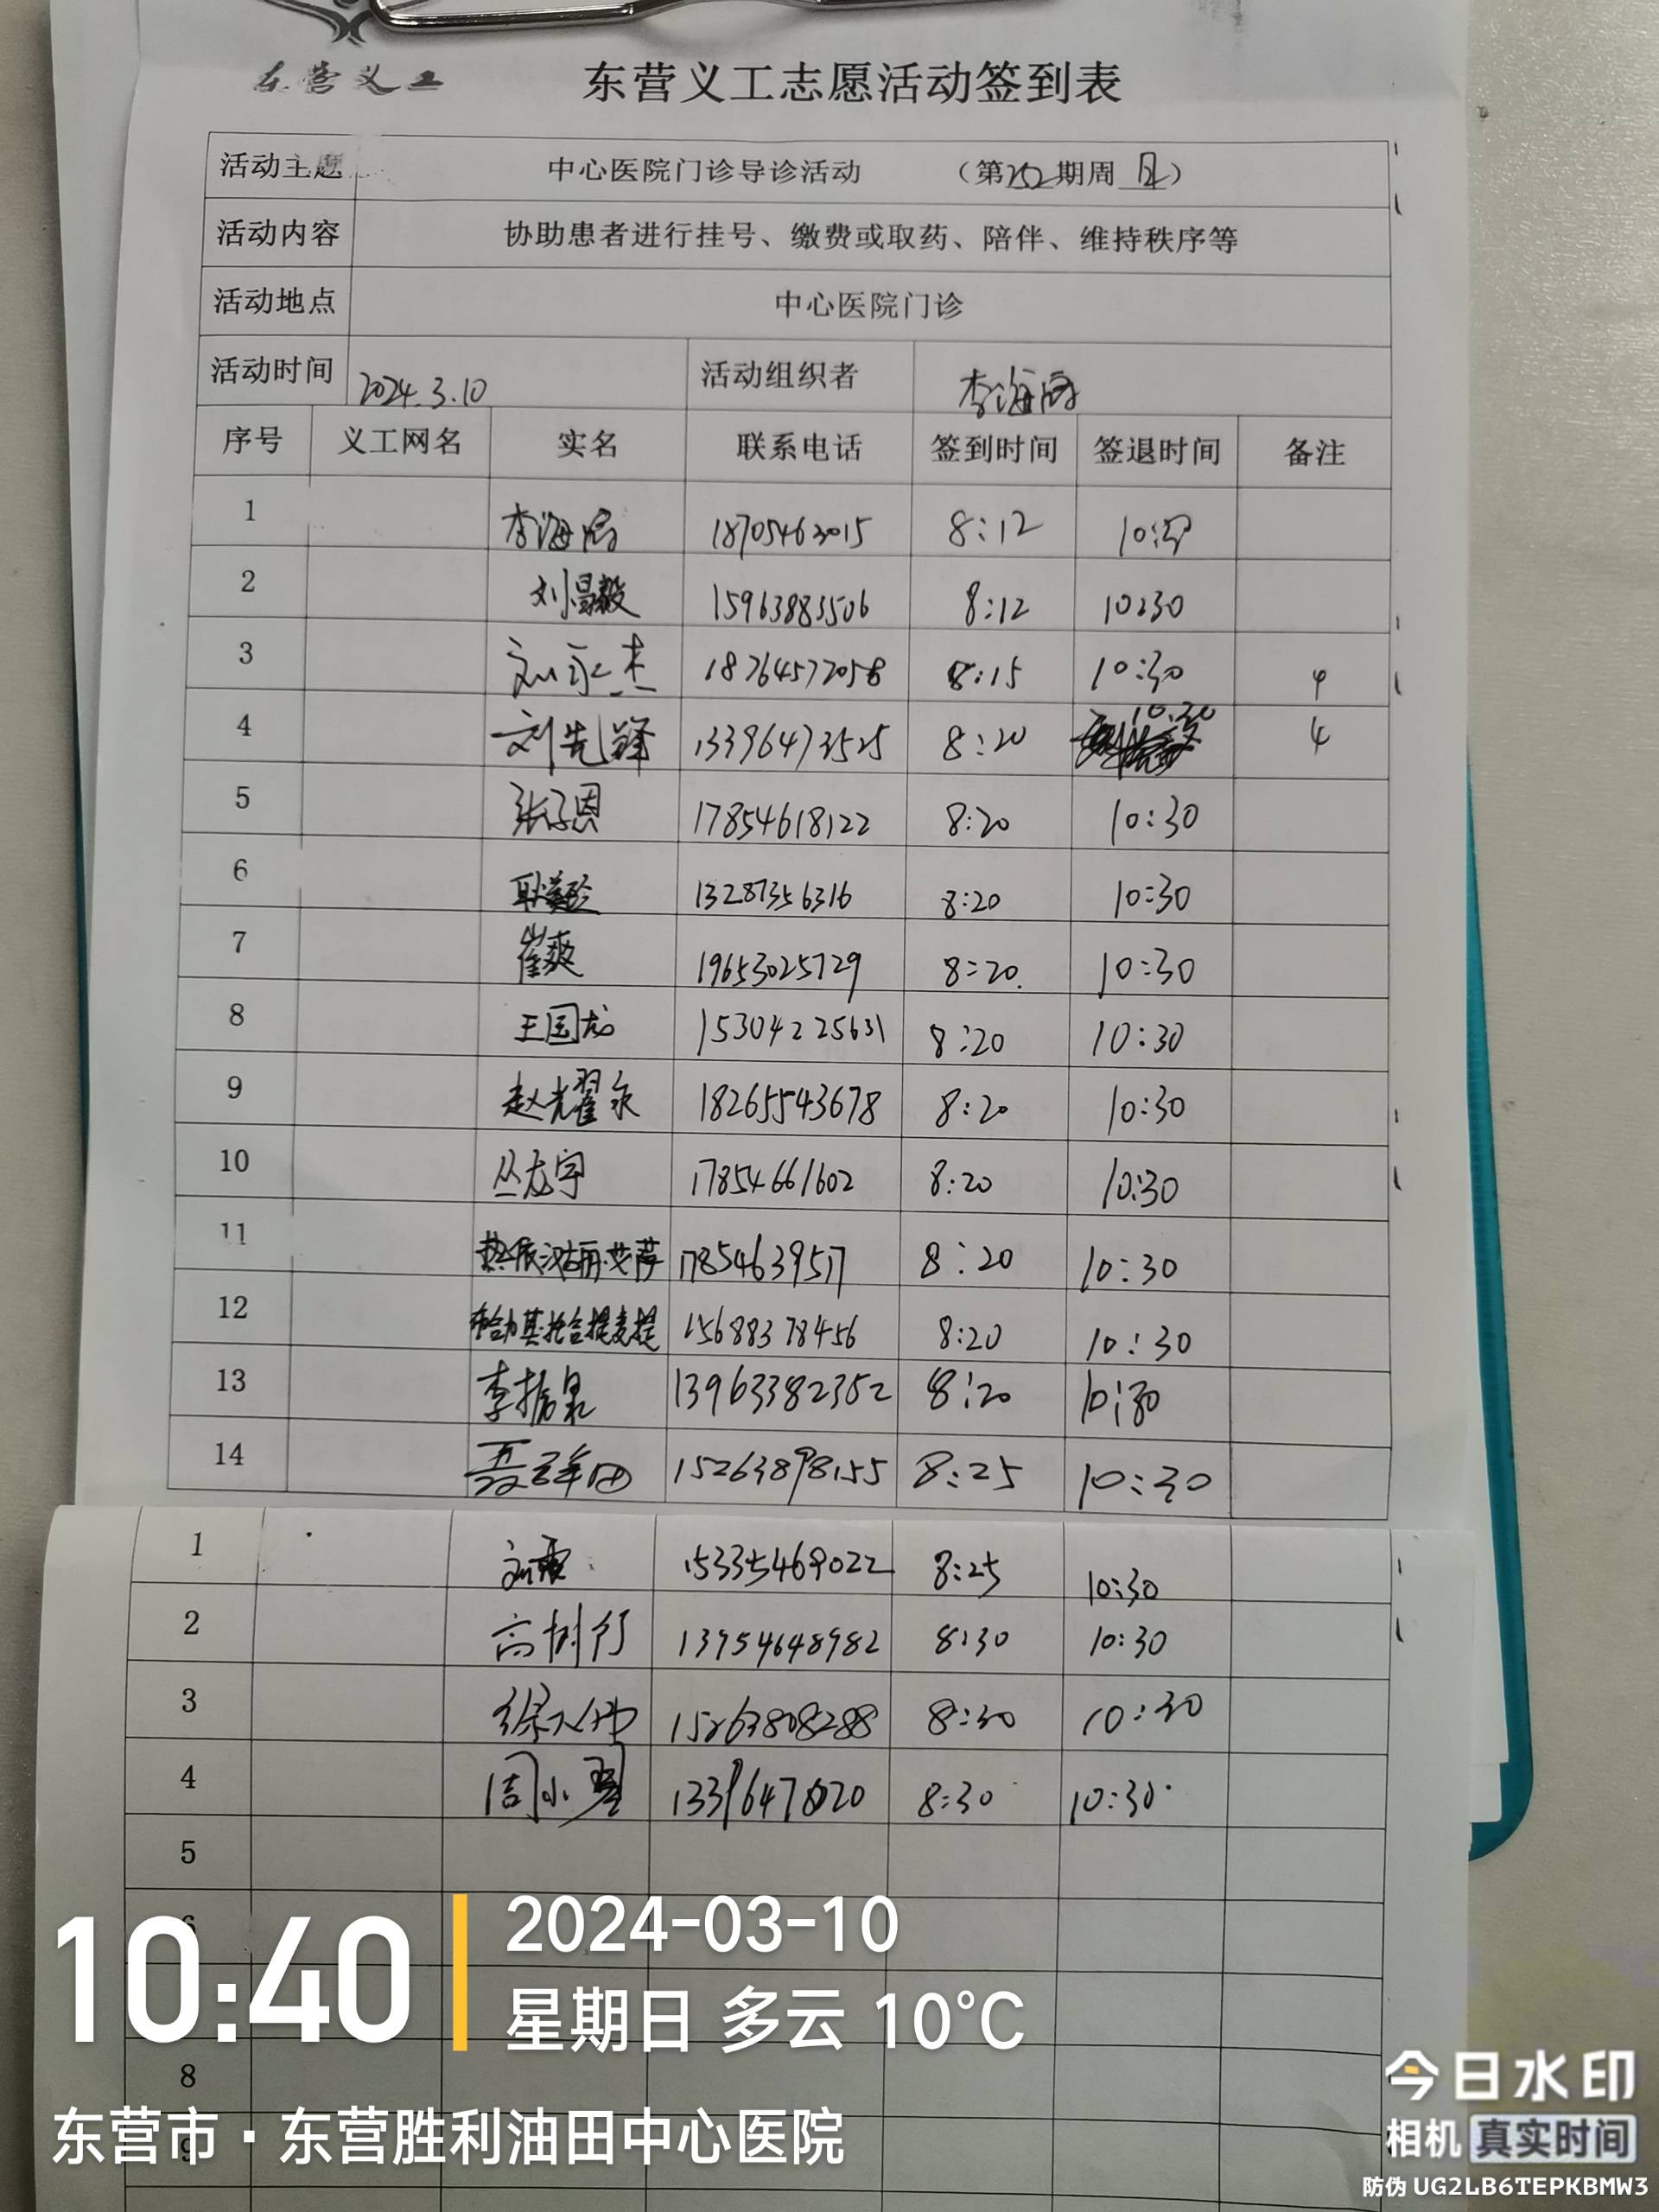 东营义工 东营义工志愿活动签到表
活动主题 中心医院门诊导诊活动 (第252期周日)
活动内容 协助患者进行挂号、缴费或取药、陪伴、维持秩序等
活动地点 中心医院门诊
活动时间 2024.3.10 活动组织者 李海
序号 义工网名 实名 联系电话 签到时间 签退时间 备注
1 李海 18705463015 8:12 10:30
2 刘昌毅 15963883506 8:12 10:30
3 刘永杰 18764572058 8:15 10:30 4
4 刘先锋 13396473525 8:20 10:30 4
5 张子恩 17854618122 8:20 10:30
6 13287356316 8:20 10:30
7 崔爽 19653025729 8:20 10:30
8 王国龙 15304225631 8:20 10:30
9 赵光耀 18265543678 8:20 10:30
10 丛龙宇 17854661602 8:20 10:30
11 17854639517 8:20 10:30
12 托合提麦提 15688378456 8:20 10:30
13 李振泉 13963382352 8:20 10:30
14 聂祥田 15263898155 8:25 10:30
1 刘震 15335469022 8:25 10:30
2 高树行 13954648982 8:30 10:30
3 徐 15263808288 8:30 10:30
4 周小 8:30 10:30
5
6
8
9
10:40 2024-03-10
星期日 多云 10°C
东营市·东营胜利油田中心医院
今日水印
相机 真实时间
防伪 UG2LB6TEPKBMW3